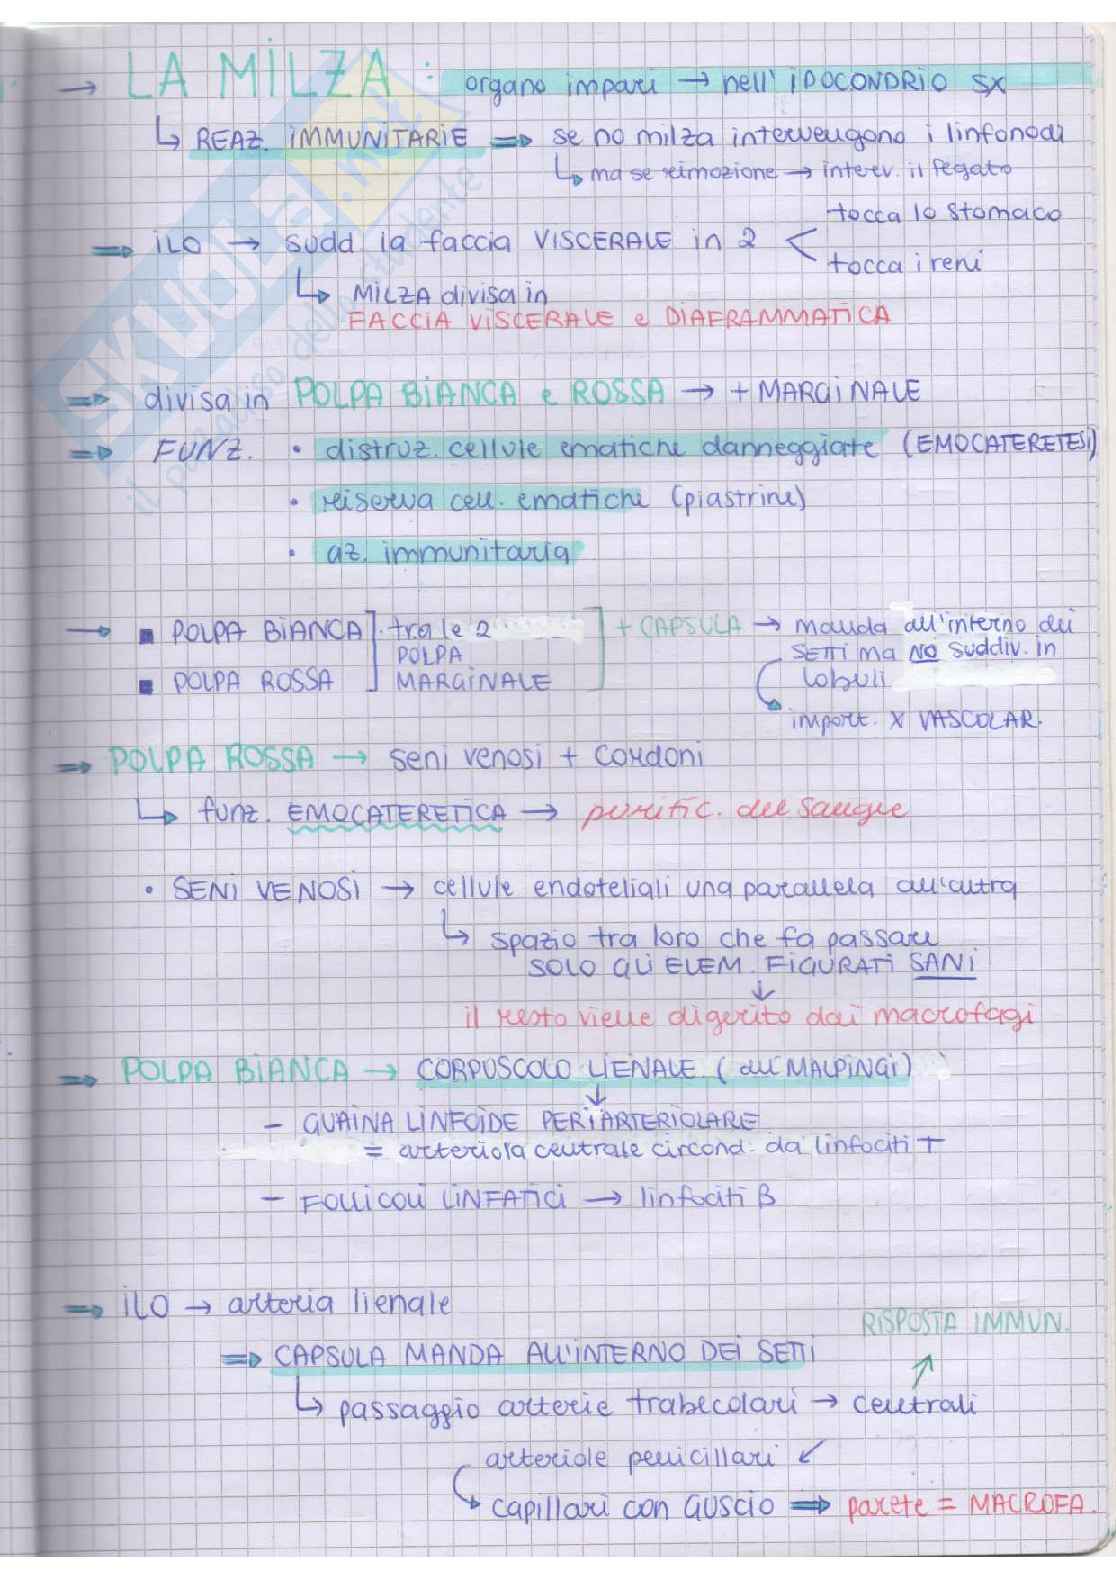 → LA MILZA : organo impari → nell' IPOCONDRIO SX
↳ REAZ. IMMUNITARIE ⇒ se no milza intervengono i linfonodi
↳ ma se rimozione → interv. il fegato
tocca lo stomaco
⇒ ILO → sudd la faccia VISCERALE in 2 <
tocca i reni
↳ MILZA divisa in
FACCIA VISCERALE e DIAFRAMMATICA
⇒ divisa in POLPA BIANCA e ROSSA → + MARGINALE
⇒ FUNZ. • distruz. cellule ematiche danneggiate (EMOCATERETESI)
• riserva cell. ematiche (piastrine)
• az. immunitaria
→ ■ POLPA BIANCA ] tra le 2 ] + CAPSULA → manda all'interno dei
POLPA SETTI ma NO suddiv. in
■ POLPA ROSSA MARGINALE lobuli
import. X VASCOLAR.
⇒ POLPA ROSSA → seni venosi + cordoni
↳ funz. EMOCATERETICA → purific. del sangue
• SENI VENOSI → cellule endoteliali una parallela all'altra
↳ spazio tra loro che fa passare
SOLO GLI ELEM. FIGURATI SANI
↓
il resto viene digerito dai macrofagi
⇒ POLPA BIANCA → CORPUSCOLO LIENALE (del MALPINGI)
↓
- GUAINA LINFOIDE PERIARTERIOLARE
= arteriola centrale circond. da linfociti T
- FOLLICOLI LINFATICI → linfociti B
⇒ ILO → arteria lienale
RISPOSTA IMMUN.
⇒ CAPSULA MANDA ALL'INTERNO DEI SETTI
↳ passaggio arterie trabecolari → centrali
arteriole penicillari ↙
↳ capillari con GUSCIO ⇒ parete = MACROFA.
SKUOLA.net
il paradiso dello studente